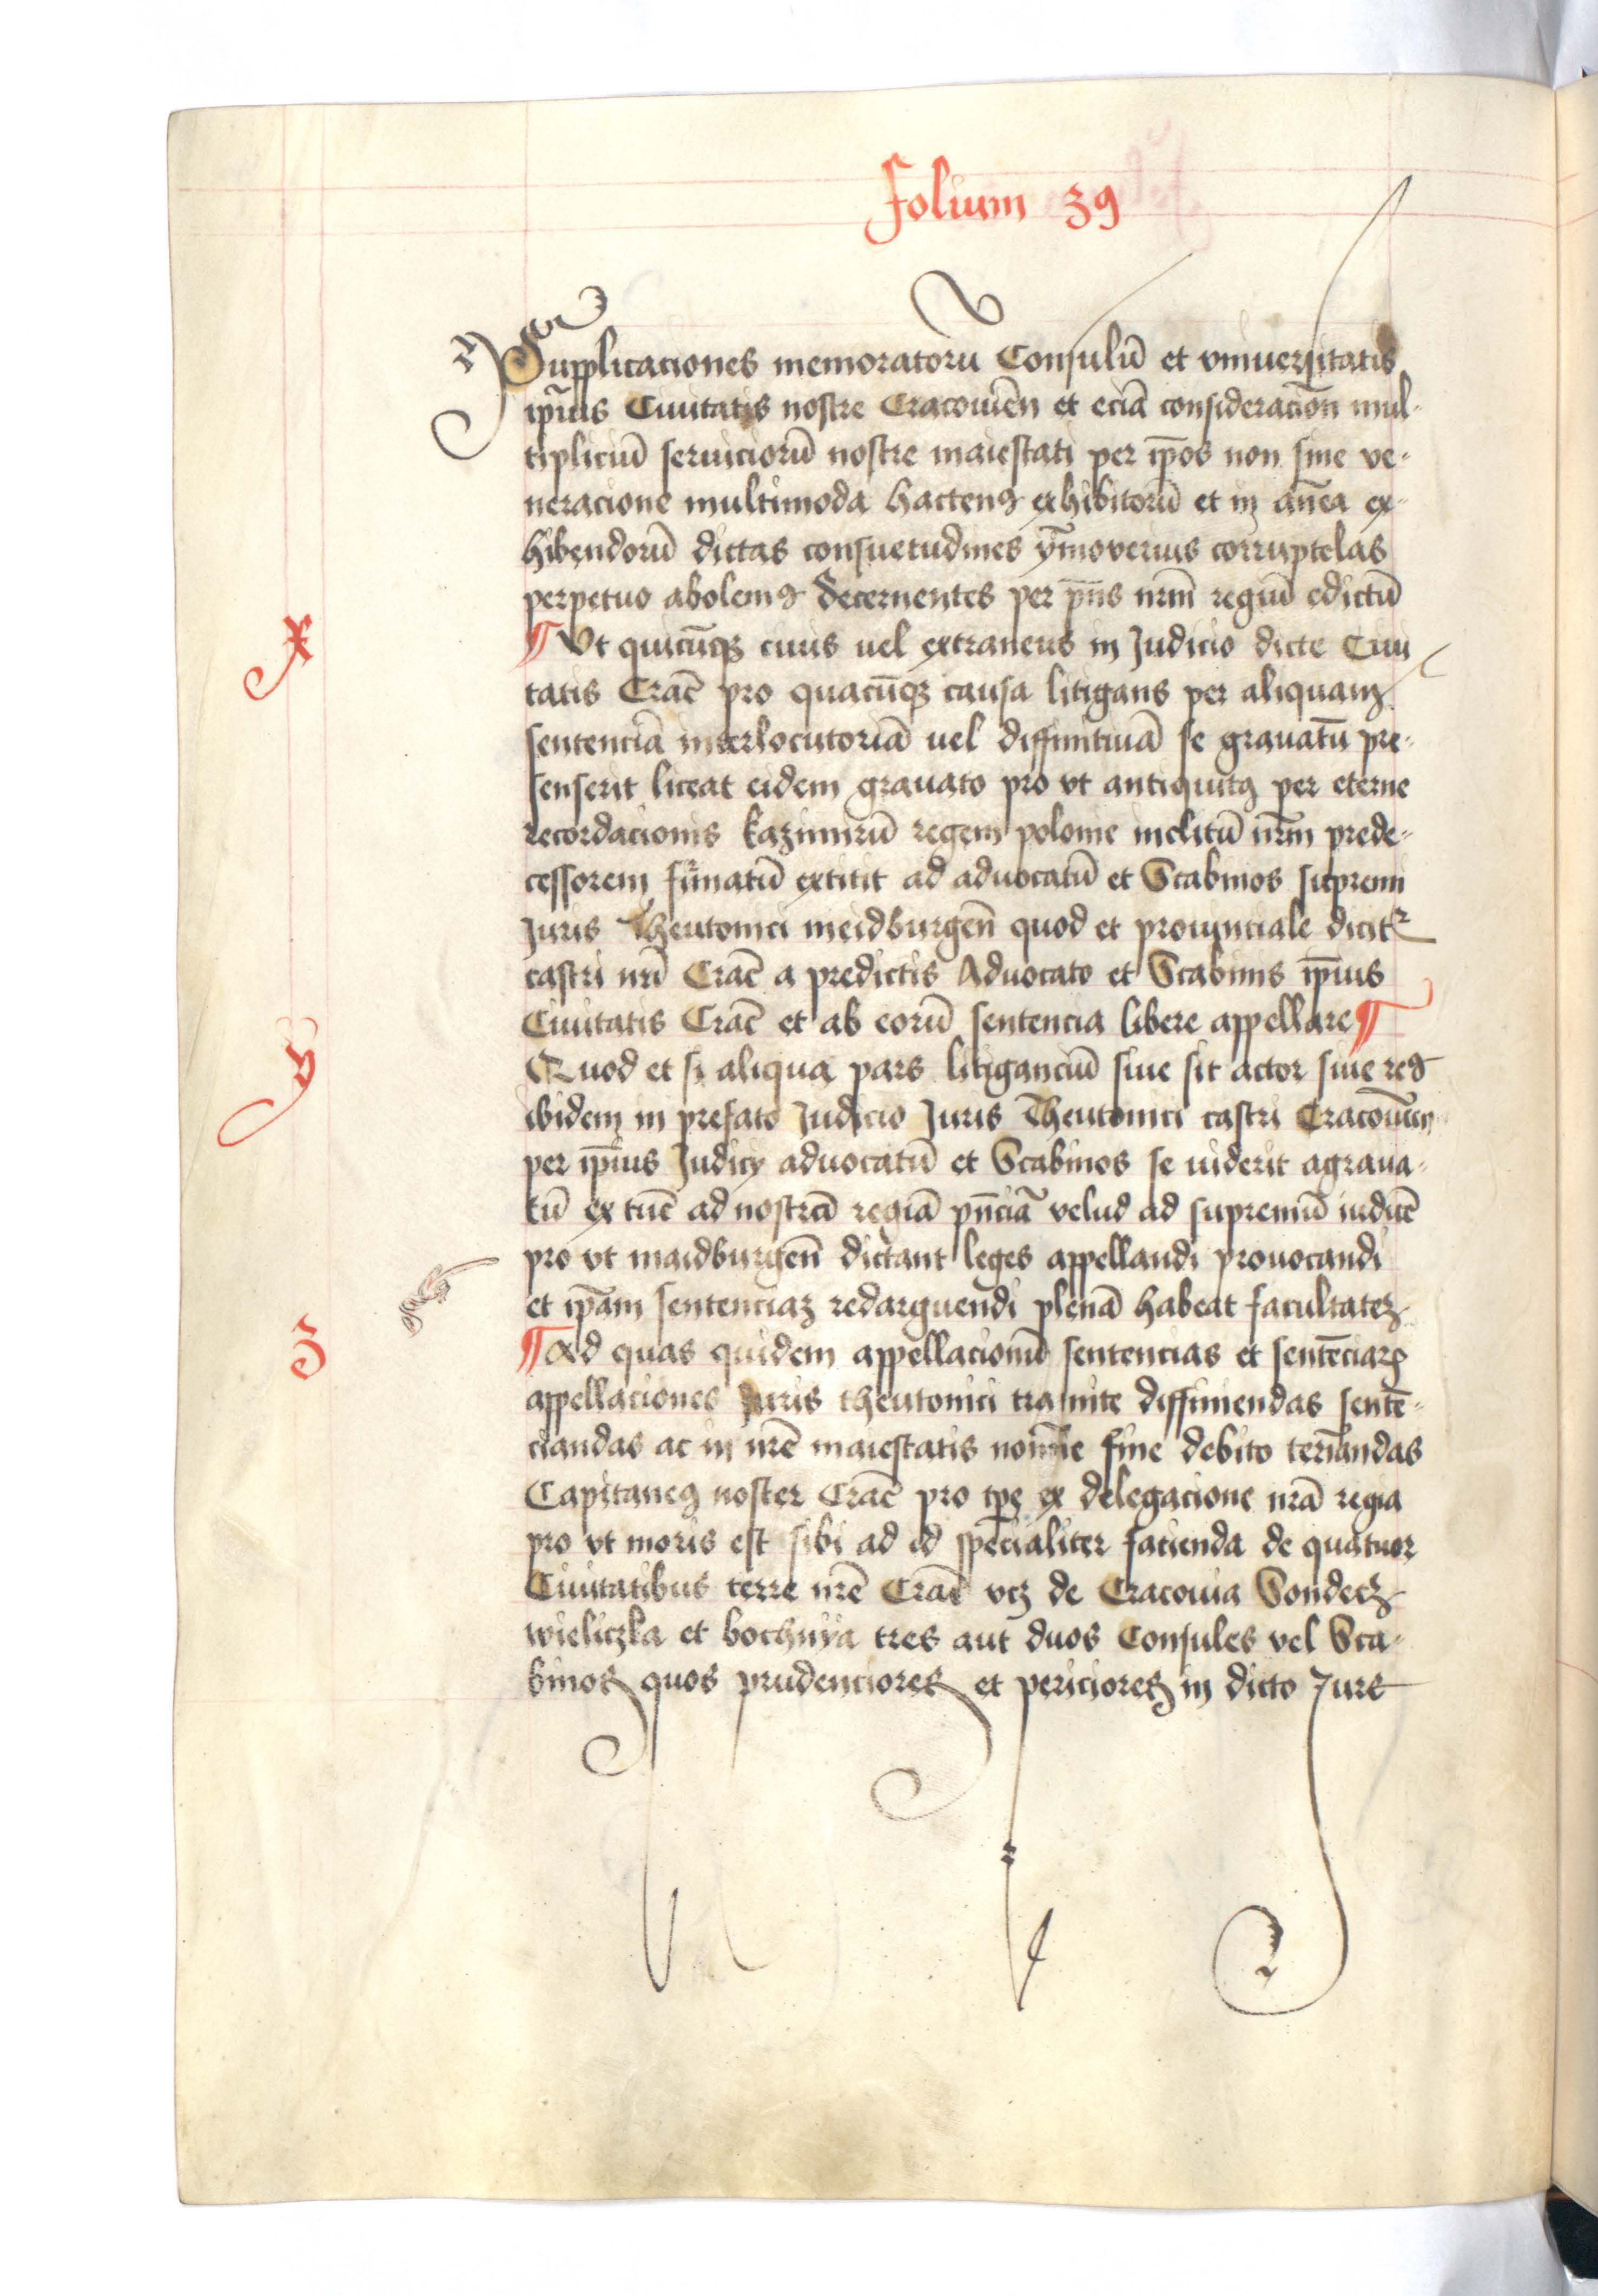 Folium 39
Supplicaciones memoratoru Consulū et vniuersitatis
ip̄ius Ciuitatis nostre Cracouien̄ et eciā consideracion̄ mul-
tipliciū seruiciorū nostre maiestati per ip̄os non sine ve-
neracione multimoda hacten9 exhibitorū et in an̄ea ex-
hibendorū dictas consuetudines ȳmoverius corruptelas
perpetuo abolem9 decernentes per pn̄s nrm̄ regiū edictū
x
¶ Vt quicūqꝫ ciuis uel extraneus in Judicio dicte Ciui
tatis Crac̄ pro quacūqꝫ causa litigans per aliquam
sentenciā interlocutoriā uel diffinitiuā se grauatū pre-
senserit liceat eidem grauato pro vt antiquit9 per eterne
recordacionis kazimirū regem polonie inclitū nrm̄ prede-
cessorem firmatū extitit ad aduocatū et Scabinos supremi
Juris Theutonici meidburgen̄ quod et prouinciale dicitr
castri nri̅ Crac̄ a predictis Aduocato et Scabinis ip̄ius
Ciuitatis Crac̄ et ab eorū sentencia libere appellare ¶
y
Quod et si aliqua pars litiganciū siue sit actor siue re9
ibidem in prefato Judicio Juris Theutonici castri Cracouien̄
per ip̄ius Judicy aduocatū et Scabinos se uiderit agraua-
tū ex tūc ad nostrā regiā pn̄ciā velud ad supremū iudicē
pro vt maidburgen̄ dictant leges appellandi prouocandi
et ip̄am sentenciaꝫ redarguendi plenā habeat facultateꝫ
z
¶ Ad quas quidem appellacionū sentencias et sentēciarꝫ
appellaciones Juris theutonici tramite diffiniendas sentē-
ciandas ac in nrē maiestatis nomīe fine debito termīandas
Capitane9 noster Crac̄ pro tpe ex delegacione nrā regia
pro vt moris est sibi ad id specialiter facienda de quatuor
Ciuitatibus terre nrē Crac̄ vcꝫ de Cracouia Sondecꝫ
wieliczka et bochnya tres aut duos Consules vel Sca-
binos quos prudenciores et periciores in dicto Jure